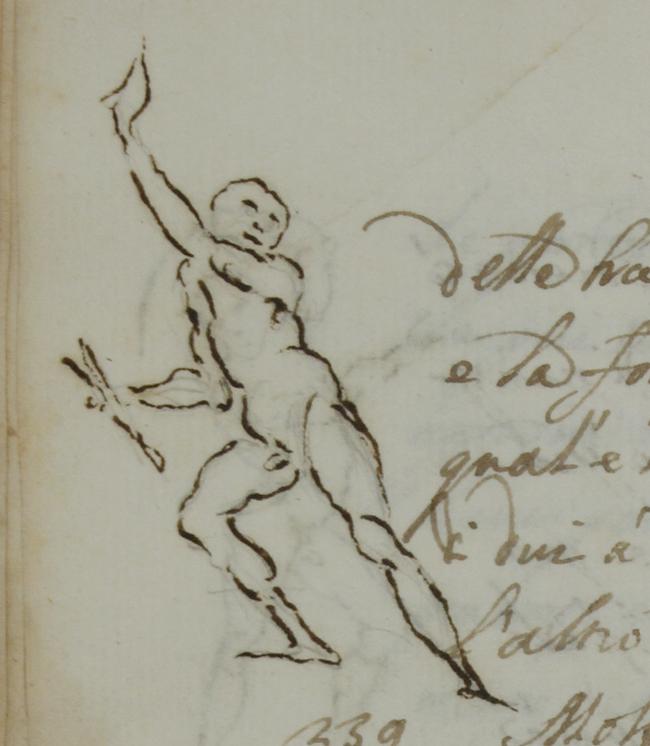 dette ha
e la fo
qual'è
i dui à
l'altro
339 Mol